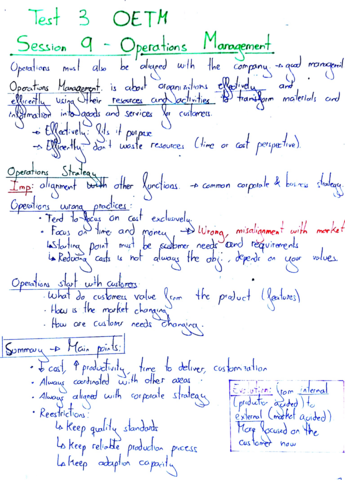 Test 3 OETM
Session 9 - Operations Management
Operations must also be aligned with the company → good managemt
Operations Management is about organisations effectively and
efficiently using their resources and activities to transform materials and
information into goods and services for customers.
→ Effectively: fits it purpose
→ Efficiently: don't waste resources (time or cost perspective)
Operations Strategy
Imp: alignment with other functions → common corporate & business strategy.
Operations wrong practices:
· Tend to focus on cost exclusively
· Focus on time and money → Wrong, misalignment with market
↳ Starting point must be customer needs and requirements
↳ Reducing costs is not always the obj, depends on your values.
Operations start with customers
· What do customers value from the product (features)
· How is the market changing
· How are customer needs changing.
Summary → Main points:
· ↓ cost, ↑ productivity, time to deliver, customization
· Always coordinated with other areas
· Always aligned with corporate strategy
· Reestrictions:
↳ Keep quality standards
↳ Keep reliable production process
↳ Keep adaption capacity
Evolution: from internal
(productor guided) to
external (market guided)
More focused on the
customer now